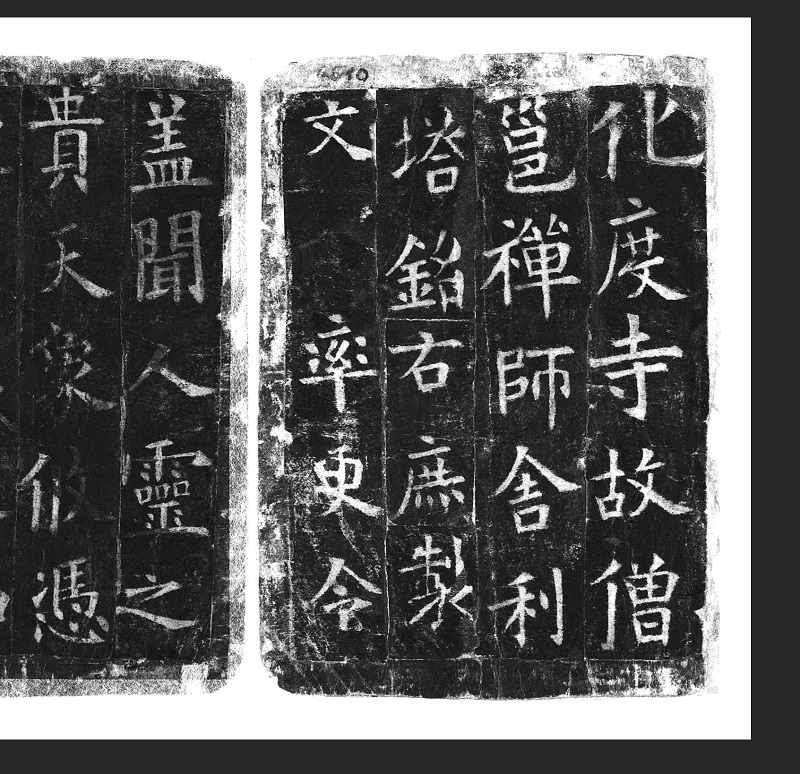 化度寺故僧
邕禪師舍利
塔銘右庶製
文率更令
盖聞人靈之
貴天象攸憑